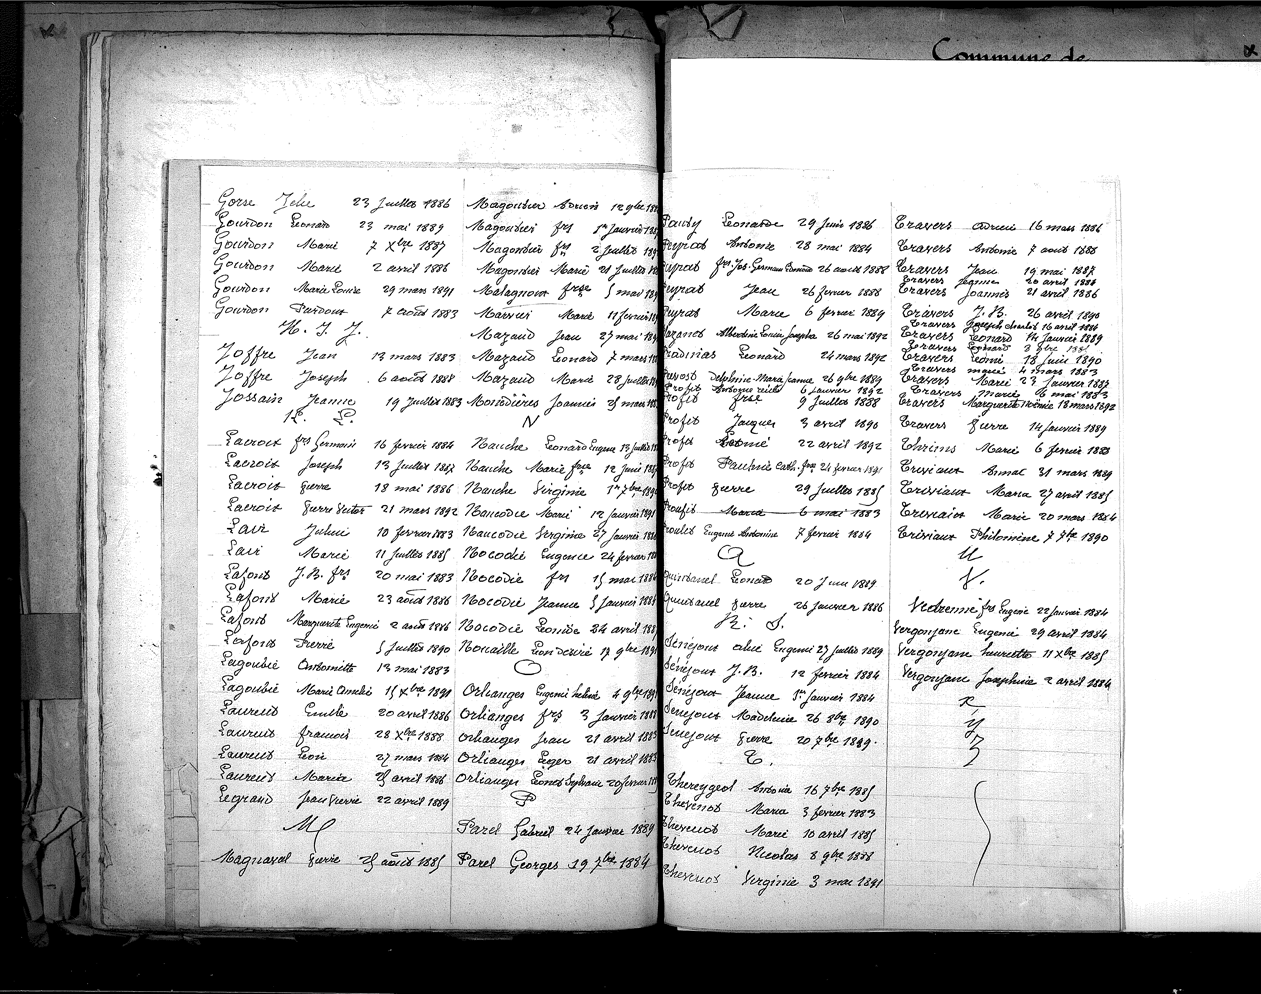 Commune de
Gorse Julie 23 Juillet 1886
Gourdon Léonard 23 mai 1889
Gourdon Marie 7 Xbre 1887
Gourdon Marie 2 avril 1886
Gourdon Marie Louise 29 mars 1891
Gourdon Pardoux 7 août 1883
H. I J.
Joffre Jean 13 mars 1883
Joffre Joseph 6 août 1888
Jossain Jeanne 19 Juillet 1883
K. L.
Lacroix frs Germain 16 fevrier 1884
Lacroix Joseph 13 Juillet 1887
Lacroix pierre 18 mai 1886
Lacroix pierre Victor 21 mars 1892
Lair Julie 10 fevrier 1883
Lair Marie 11 Juillet 1885
Lafont J. B. frs 20 mai 1883
Lafont Marie 23 août 1886
Lafont Marguerite Eugenie 2 août 1886
Lafont Pierre 5 Juillet 1890
Lagoudie Antoinette 13 mai 1883
Lagoudie Marie Amélie 15 Xbre 1891
Laurent Emilie 20 avril 1886
Laurent francois 28 Xbre 1888
Laurent Léon 27 mars 1884
Laurent Maria 25 avril 1886
Legrand Jean Pierre 22 avril 1889
M
Magnaval pierre 25 août 1885
Magoutier Adrien 12 9bre
Magoutier frs 1er Janvier
Magoutier frs 2 Juillet
Magoutier Marie 21 Juillet
Malagnoux frse 5 mai
Marie 11 fevrier
Mazaud Jean 27 mai
Mazaud Léonard 7 mars
Mazaud Marie 28 Juillet
Monédières Joannis 25 mars
N
Nauche Léonard Eugene 13 Juillet
Nauche Marie frse 12 Juin
Nauche Virginie 1er 7bre
Naucodie Marie 12 Janvier
Naucodie Virginie 27 Janvier
Nocodie Eugenie 24 fevrier
Nocodie frs 15 mai
Nocodie Jeanne 5 Janvier
Nocodie Léonide 24 avril
Nouaille Léon 17 9bre
O
Orlianges Eugenie 4 9bre
Orlianges frs 3 Janvier
Orlianges Jean 21 avril 1883
Orlianges Léger 21 avril
Orlianges Léonet Sylvain 20 fevrier
P
Parel Gabriel 24 Janvier 1889
Parel Georges 19 7bre 1884
Léonarde 29 Juin 1886
Antoine 28 mai 1884
frs. Jos. Germain 26 août 1888
Jean 26 fevrier 1888
Marie 6 fevrier 1889
Albertine Louise Josepha 26 mai 1892
Léonard 24 mars 1892
Delphine Maria Jeanne 26 9bre 1889
6 Janvier 1892
Profit frse 9 Juillet 1888
Profit Jacques 3 avril 1890
Profit 22 avril 1892
Profit Pauline Cath. frse 24 fevrier 1891
Profit pierre 29 Juillet 1885
Maria 6 mai 1883
Eugenie Antoinine 7 fevrier 1884
Q
Quintanel Léonard 20 Juin 1889
Quintanel pierre 26 Janvier 1886
R. S.
Sénéjoux Eugenie 27 Juillet 1889
Sénéjoux J. B. 12 fevrier 1884
Sénéjoux Jeanne 1er Janvier 1884
Sénéjoux Madeleine 26 8bre 1890
Sénéjoux pierre 20 7bre 1889.
T.
Théreygeol Antonia 16 7bre 1885
Thévenot Maria 3 fevrier 1883
Thévenot Marie 10 avril 1885
Thévenot Nicolas 8 9bre 1888
Thévenot Virginie 3 mai 1891
Travers Adrien 16 mars 1886
Travers Antonin 7 août 1888
Travers Jean 19 mai 1887
Travers Jeanne 20 avril 1886
Travers Joannis 21 avril 1886
Travers J. B. 26 avril 1890
Travers Joseph 16 avril 1884
Travers Léonard 14 Janvier 1889
Travers Léonard
Travers Léonie 18 Juin 1890
Travers marie 4 mars 1883
Travers Marie 23 Janvier 1887
Travers marie 16 mai 1883
Travers Marguerite Noémie 18 mars 1892
Travers pierre 14 Janvier 1889
Marie 6 fevrier 1888
Treviaux 31 mars 1889
Treviaux Maria 27 avril 1885
Treviaux Marie 20 mars 1884
Treviaux Philomène 7 7bre 1890
U
V.
Vedrenne frs Eugène 22 Janvier 1884
Vergonjane Eugenie 29 avril 1884
Vergonjane henriette 11 Xbre 1885
Vergonjane Josephine 2 avril 1884
X
Y
Z